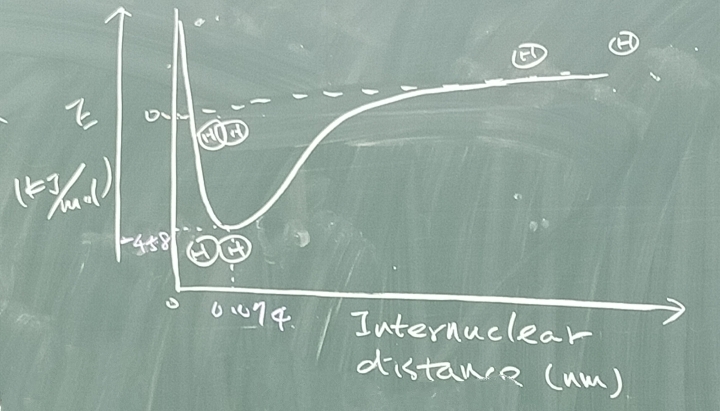 E
(kJ/mol)
0
H H
H H
H
H
-458
0
0.074
Internuclear
distance (nm)